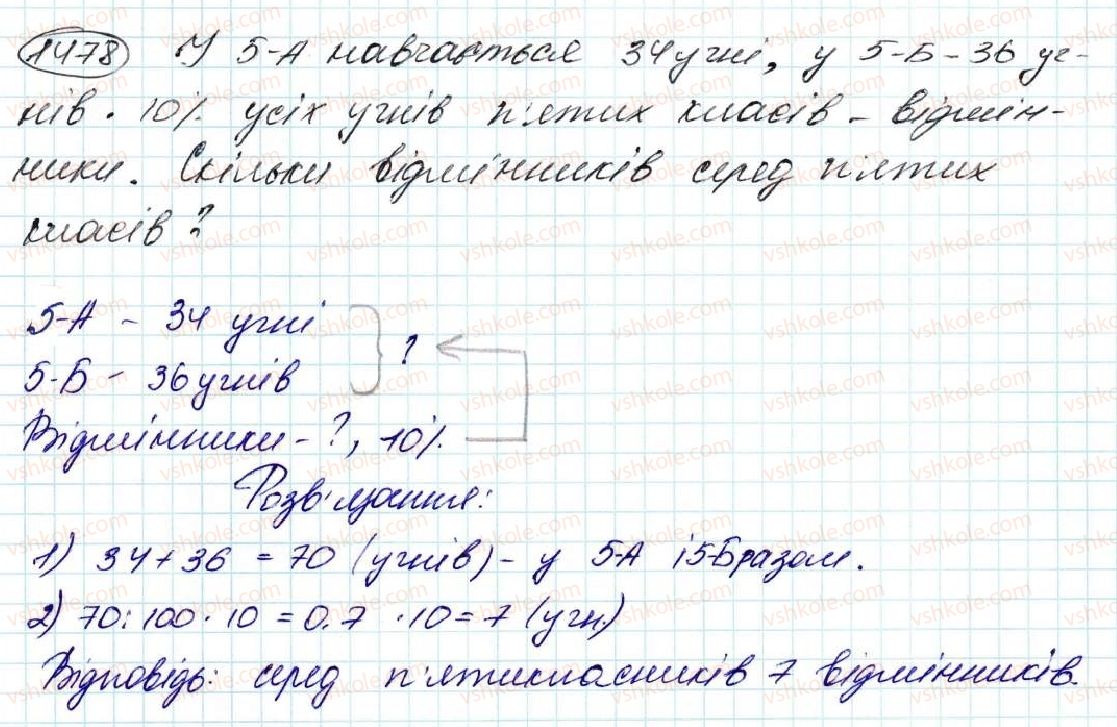 1478 У 5-А навчається 34 учні, у 5-Б - 36 уч-
нів. 10% усіх учнів п'ятих класів - відмін-
ники. Скільки відмінників серед п'ятих
класів?
5-А - 34 учні
?
5-Б - 36 учнів
Відмінники - ?, 10%
Розв'язання:
1) 34 + 36 = 70 (учнів) - у 5-А і 5-Б разом.
2) 70 : 100 · 10 = 0.7 · 10 = 7 (учн.)
Відповідь: серед п'ятикласників 7 відмінників.
vshkole.com